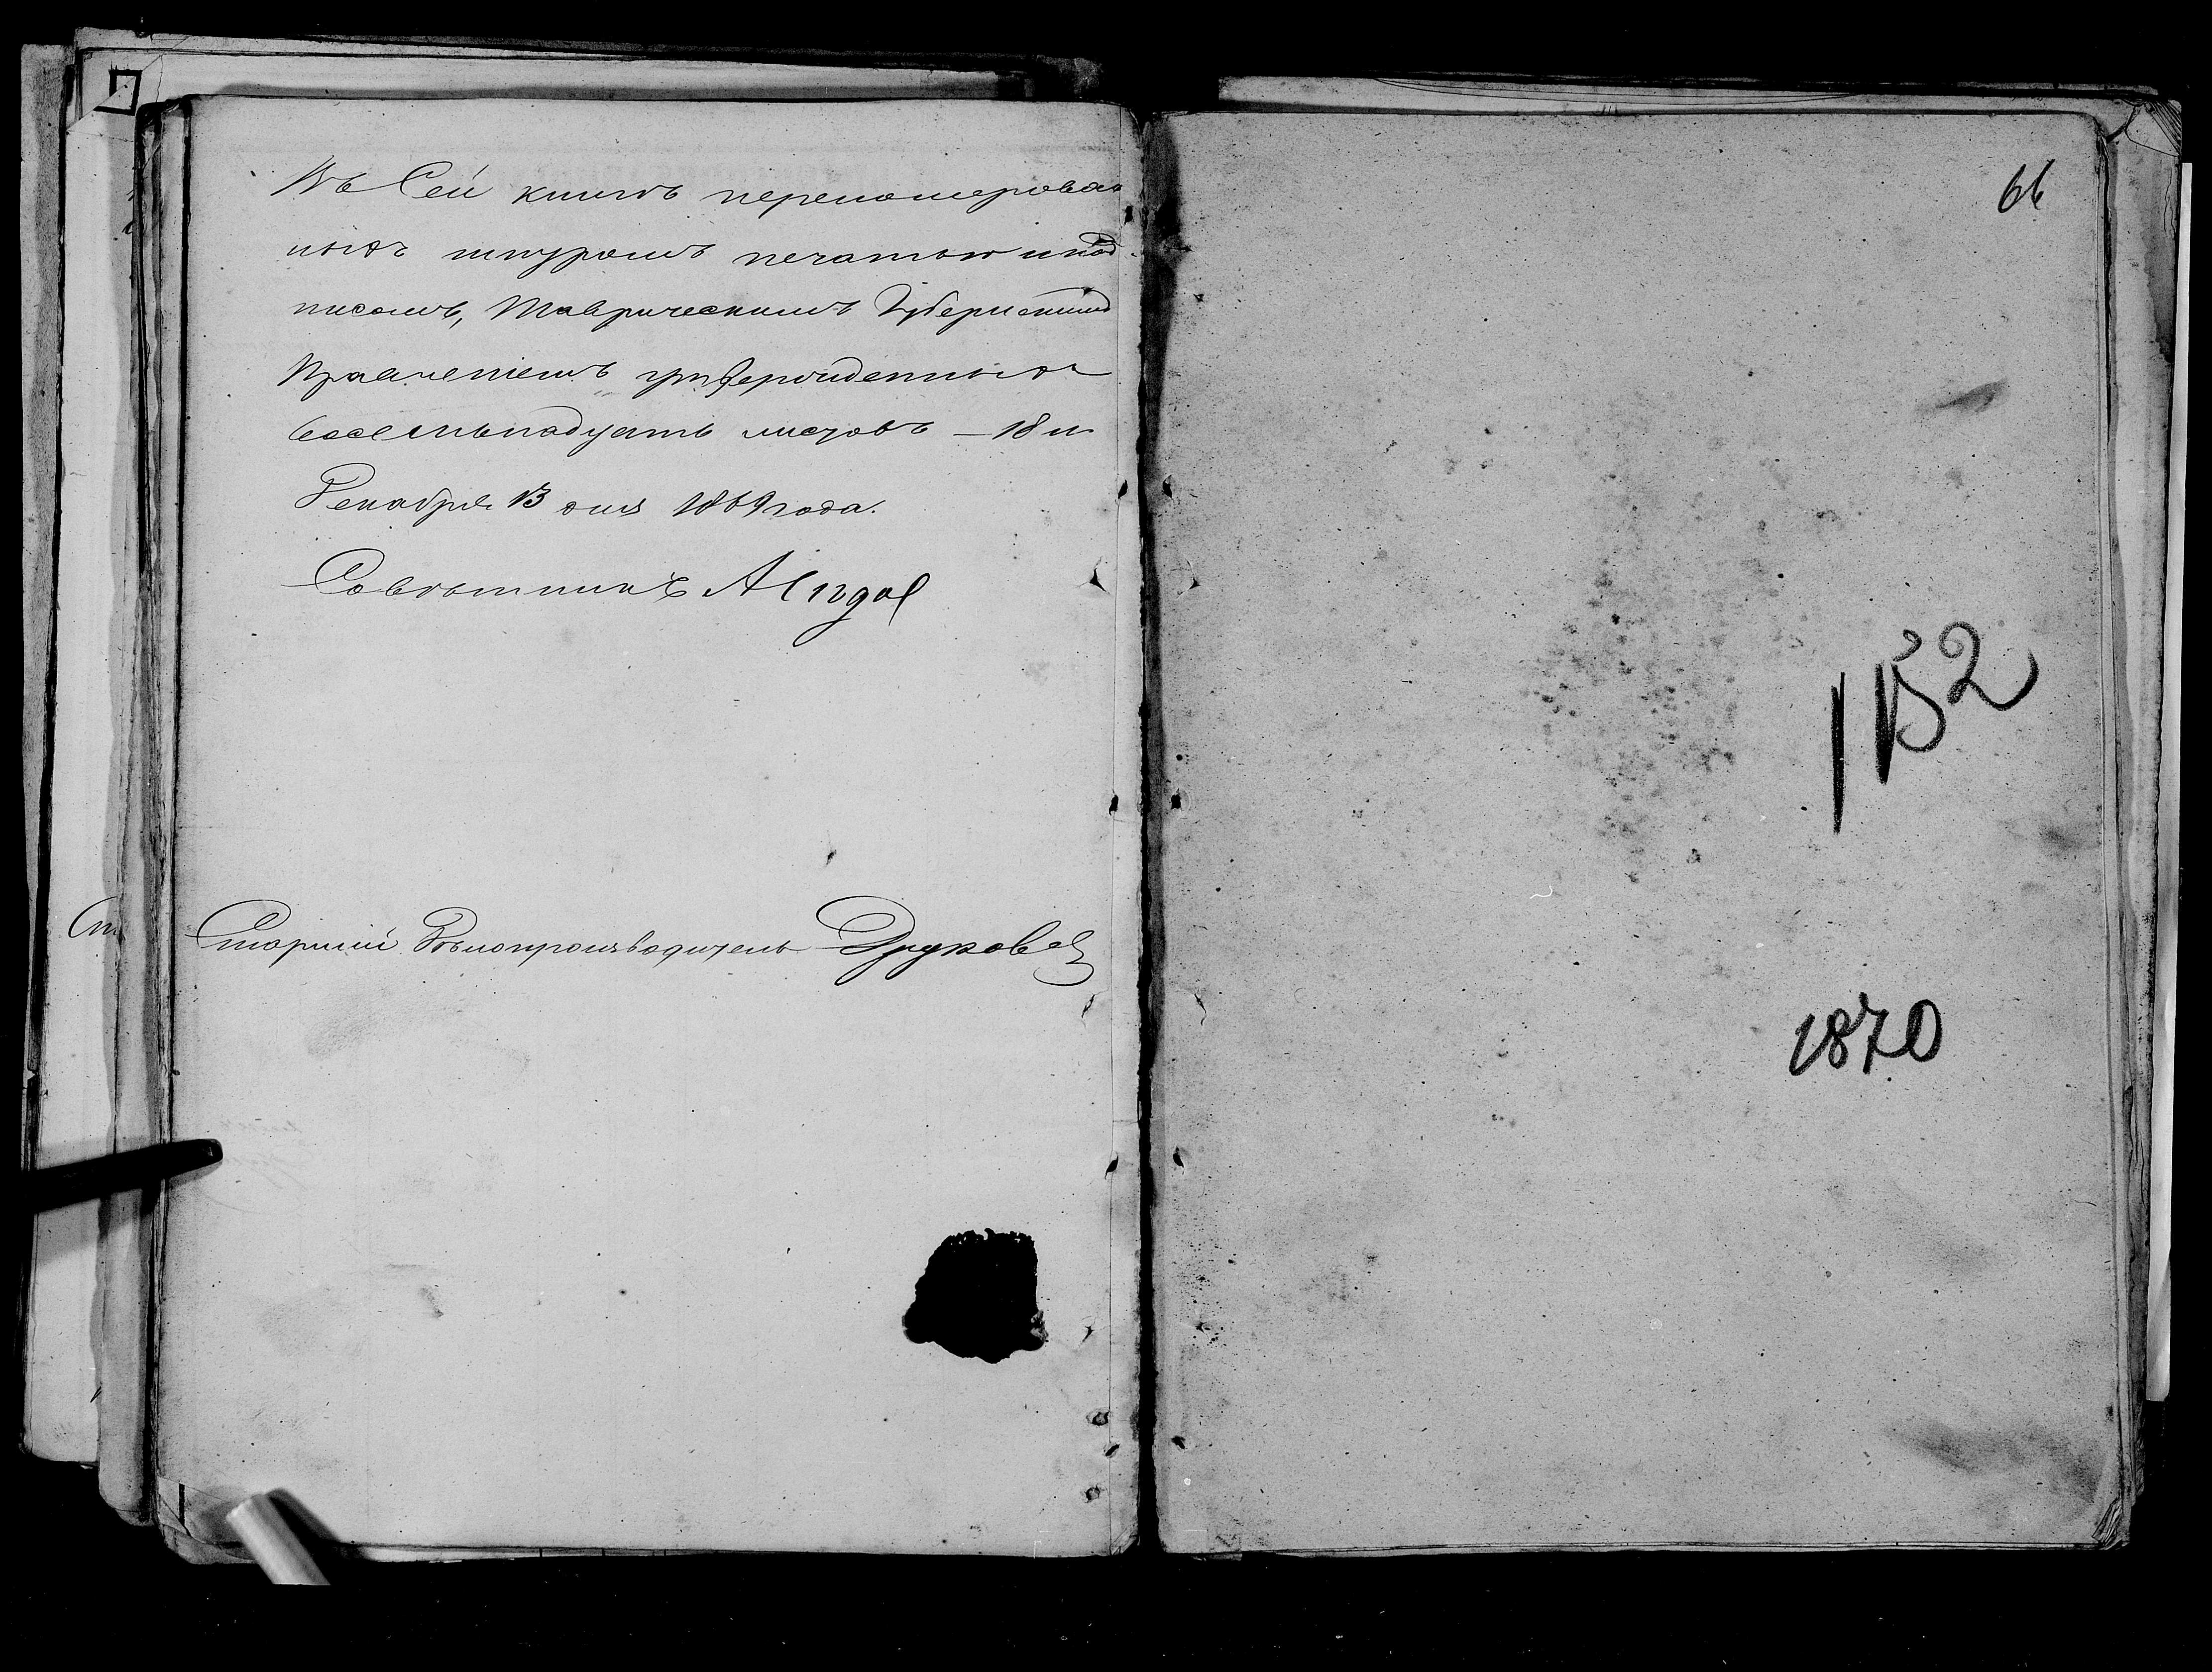 Въ Сей книгѣ переномерован
ныхъ шнуромъ печатью и под
писомъ, Таврическимъ Губернскимъ
Правленіемъ утвержденныхъ
восемьнадцать листовъ — 18 и
Декабря 13 дня 1869 года.
Совѣтникъ
Старшій Дѣлопроизводитель
66
1152
1870